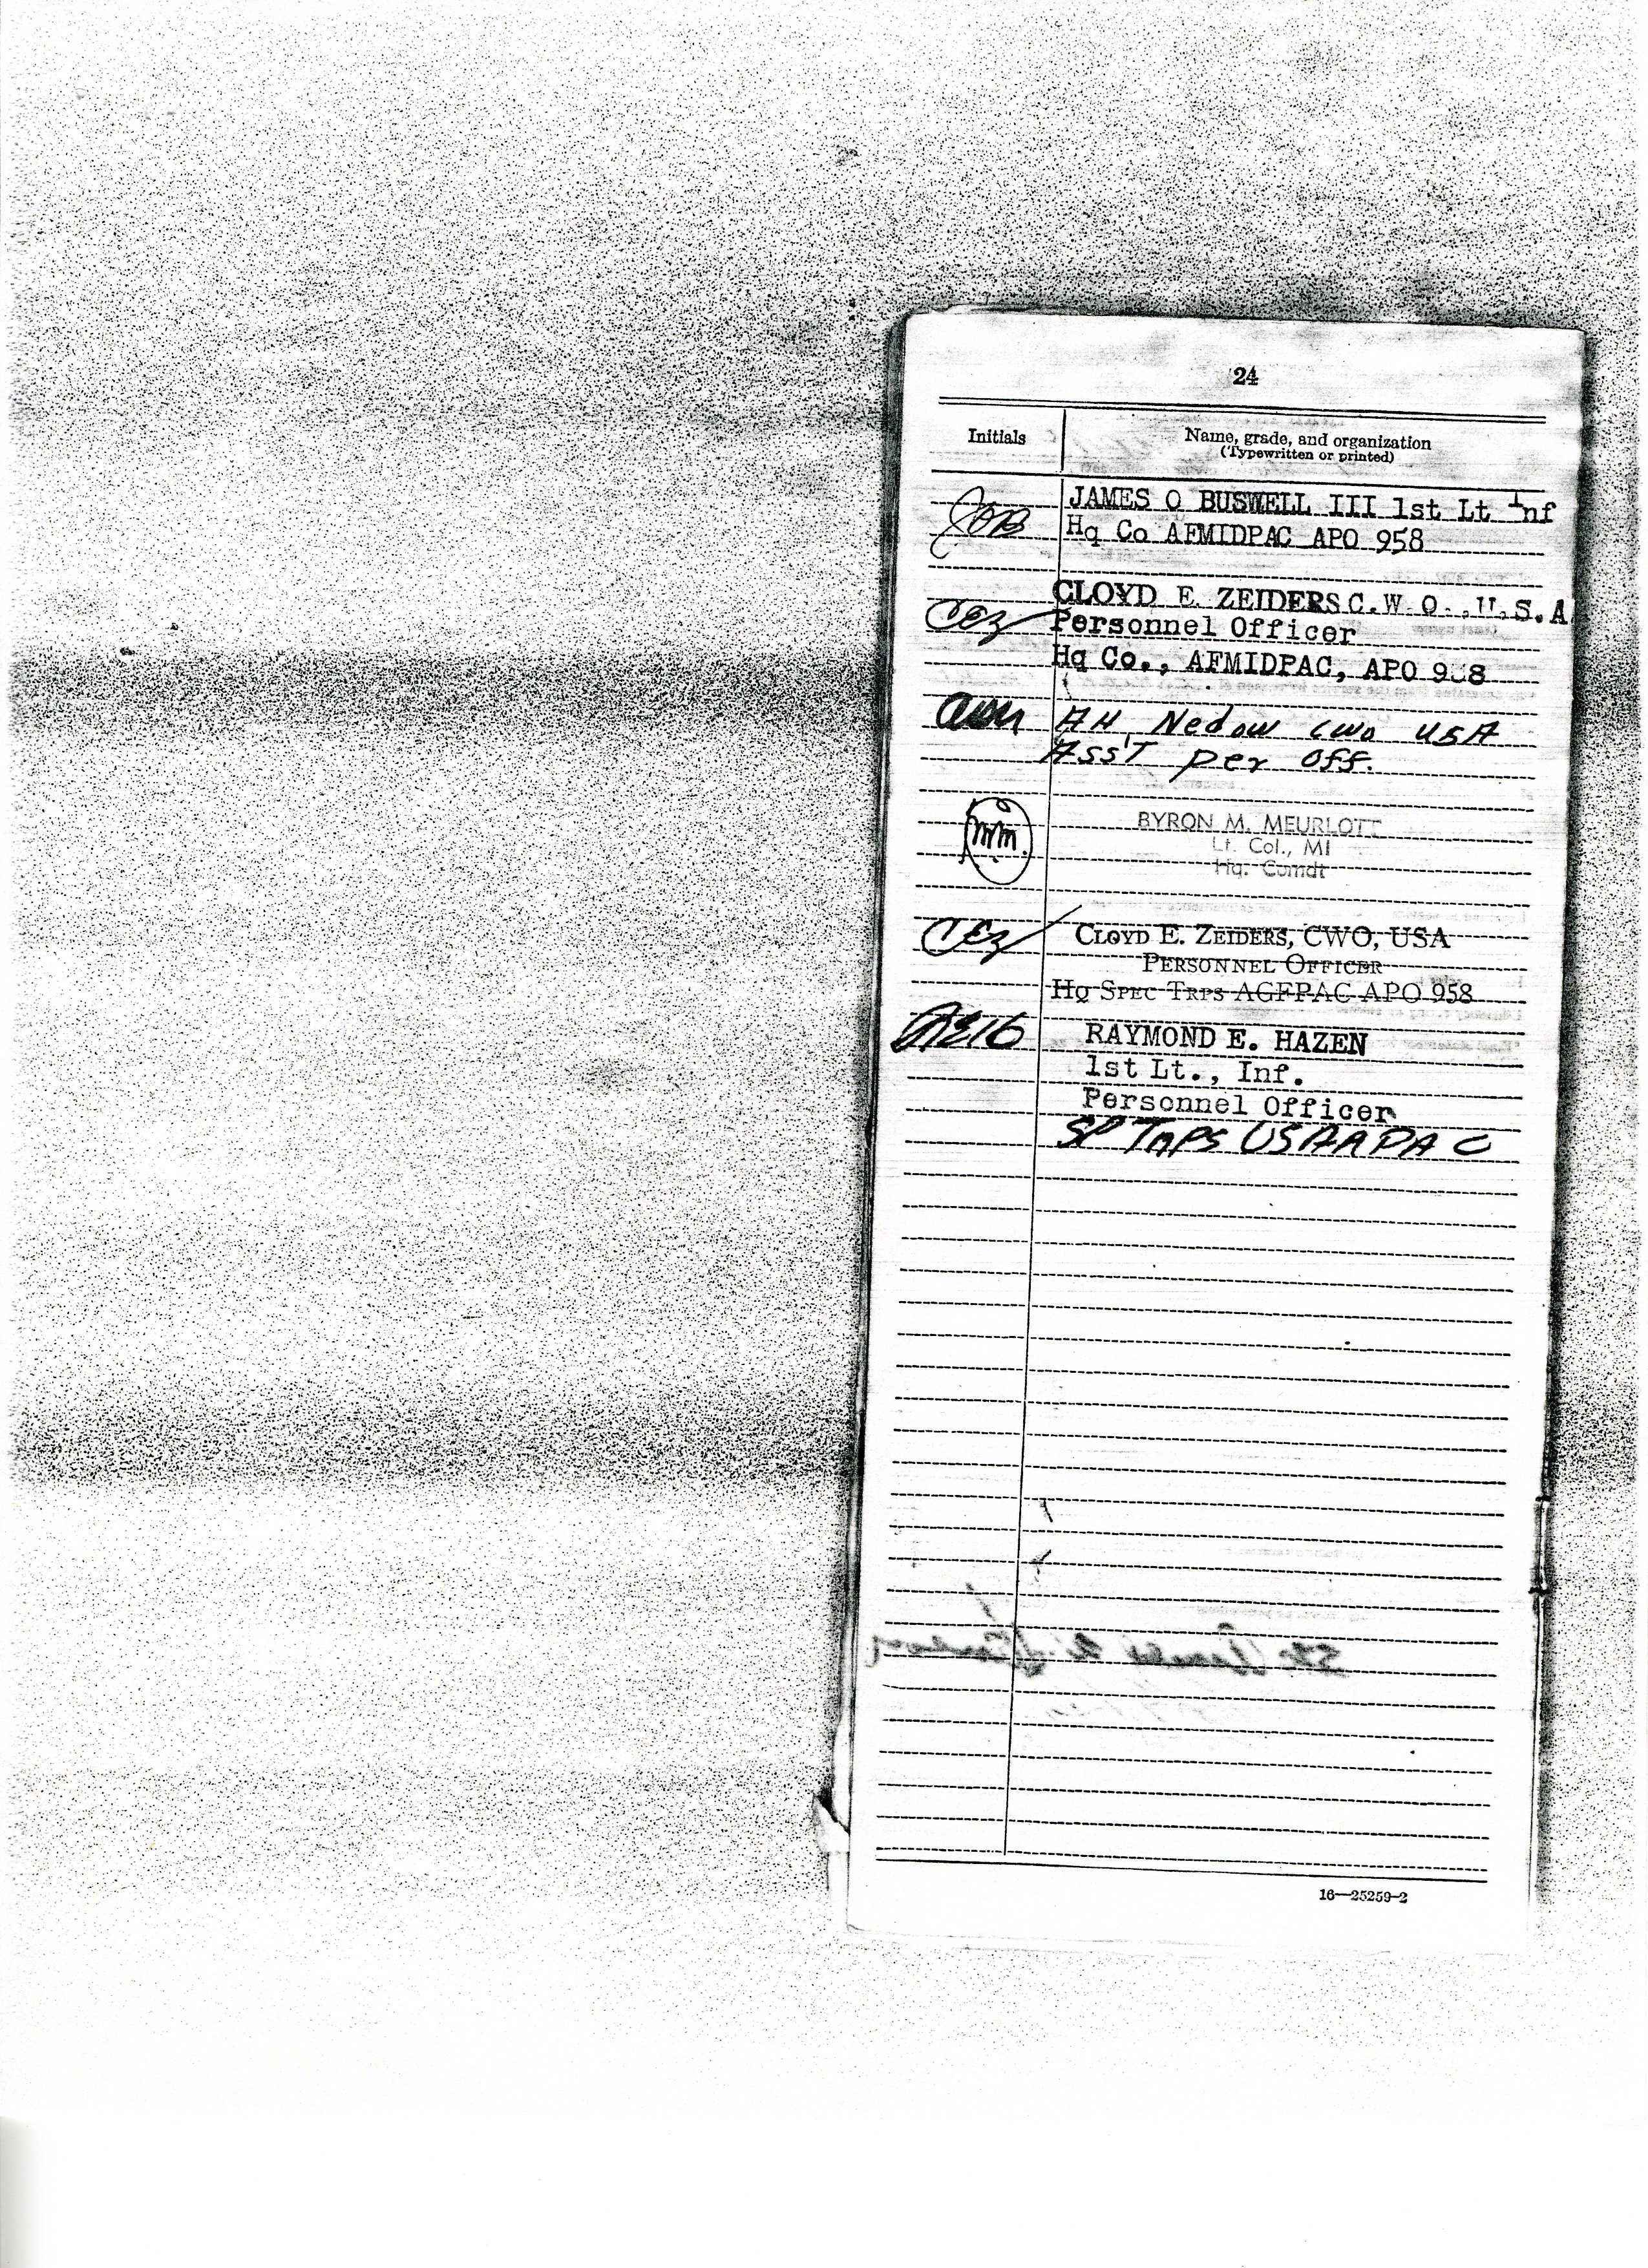 24
Initials
Name, grade, and organization
(Typewritten or printed)
JOB JAMES O BUSWELL III 1st Lt Inf
Hq Co AFMIDPAC APO 958
CLOYD E. ZEIDERS C.W.O.,U.S.A
CEZ Personnel Officer
Hq Co., AFMIDPAC, APO 958
AHN AH Nedow CWO USA
Ass't per off.
BMM. BYRON M. MEURLOTT
Lt. Col., MI
Hq. Comdt
CEZ CLOYD E. ZEIDERS, CWO, USA
PERSONNEL OFFICER
HQ SPEC TRPS AGFPAC APO 958
RAYMOND E. HAZEN
1st Lt., Inf.
Personnel Officer
SP TRPS USARPAC
16—25259-2